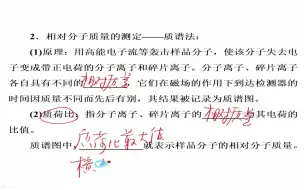 2．相对分子质量的测定——质谱法：
(1)原理：用高能电子流等轰击样品分子，使该分子失去电
子变成带正电荷的分子离子和碎片离子。分子离子、碎片离子
各自具有不同的相对质量，它们在磁场的作用下到达检测器的
时间因质量不同而先后有别，其结果被记录为质谱图。
(2)质荷比：指分子离子、碎片离子的相对质量与其电荷的
比值。
质谱图中，质荷比最大值就表示样品分子的相对分子质量。
横